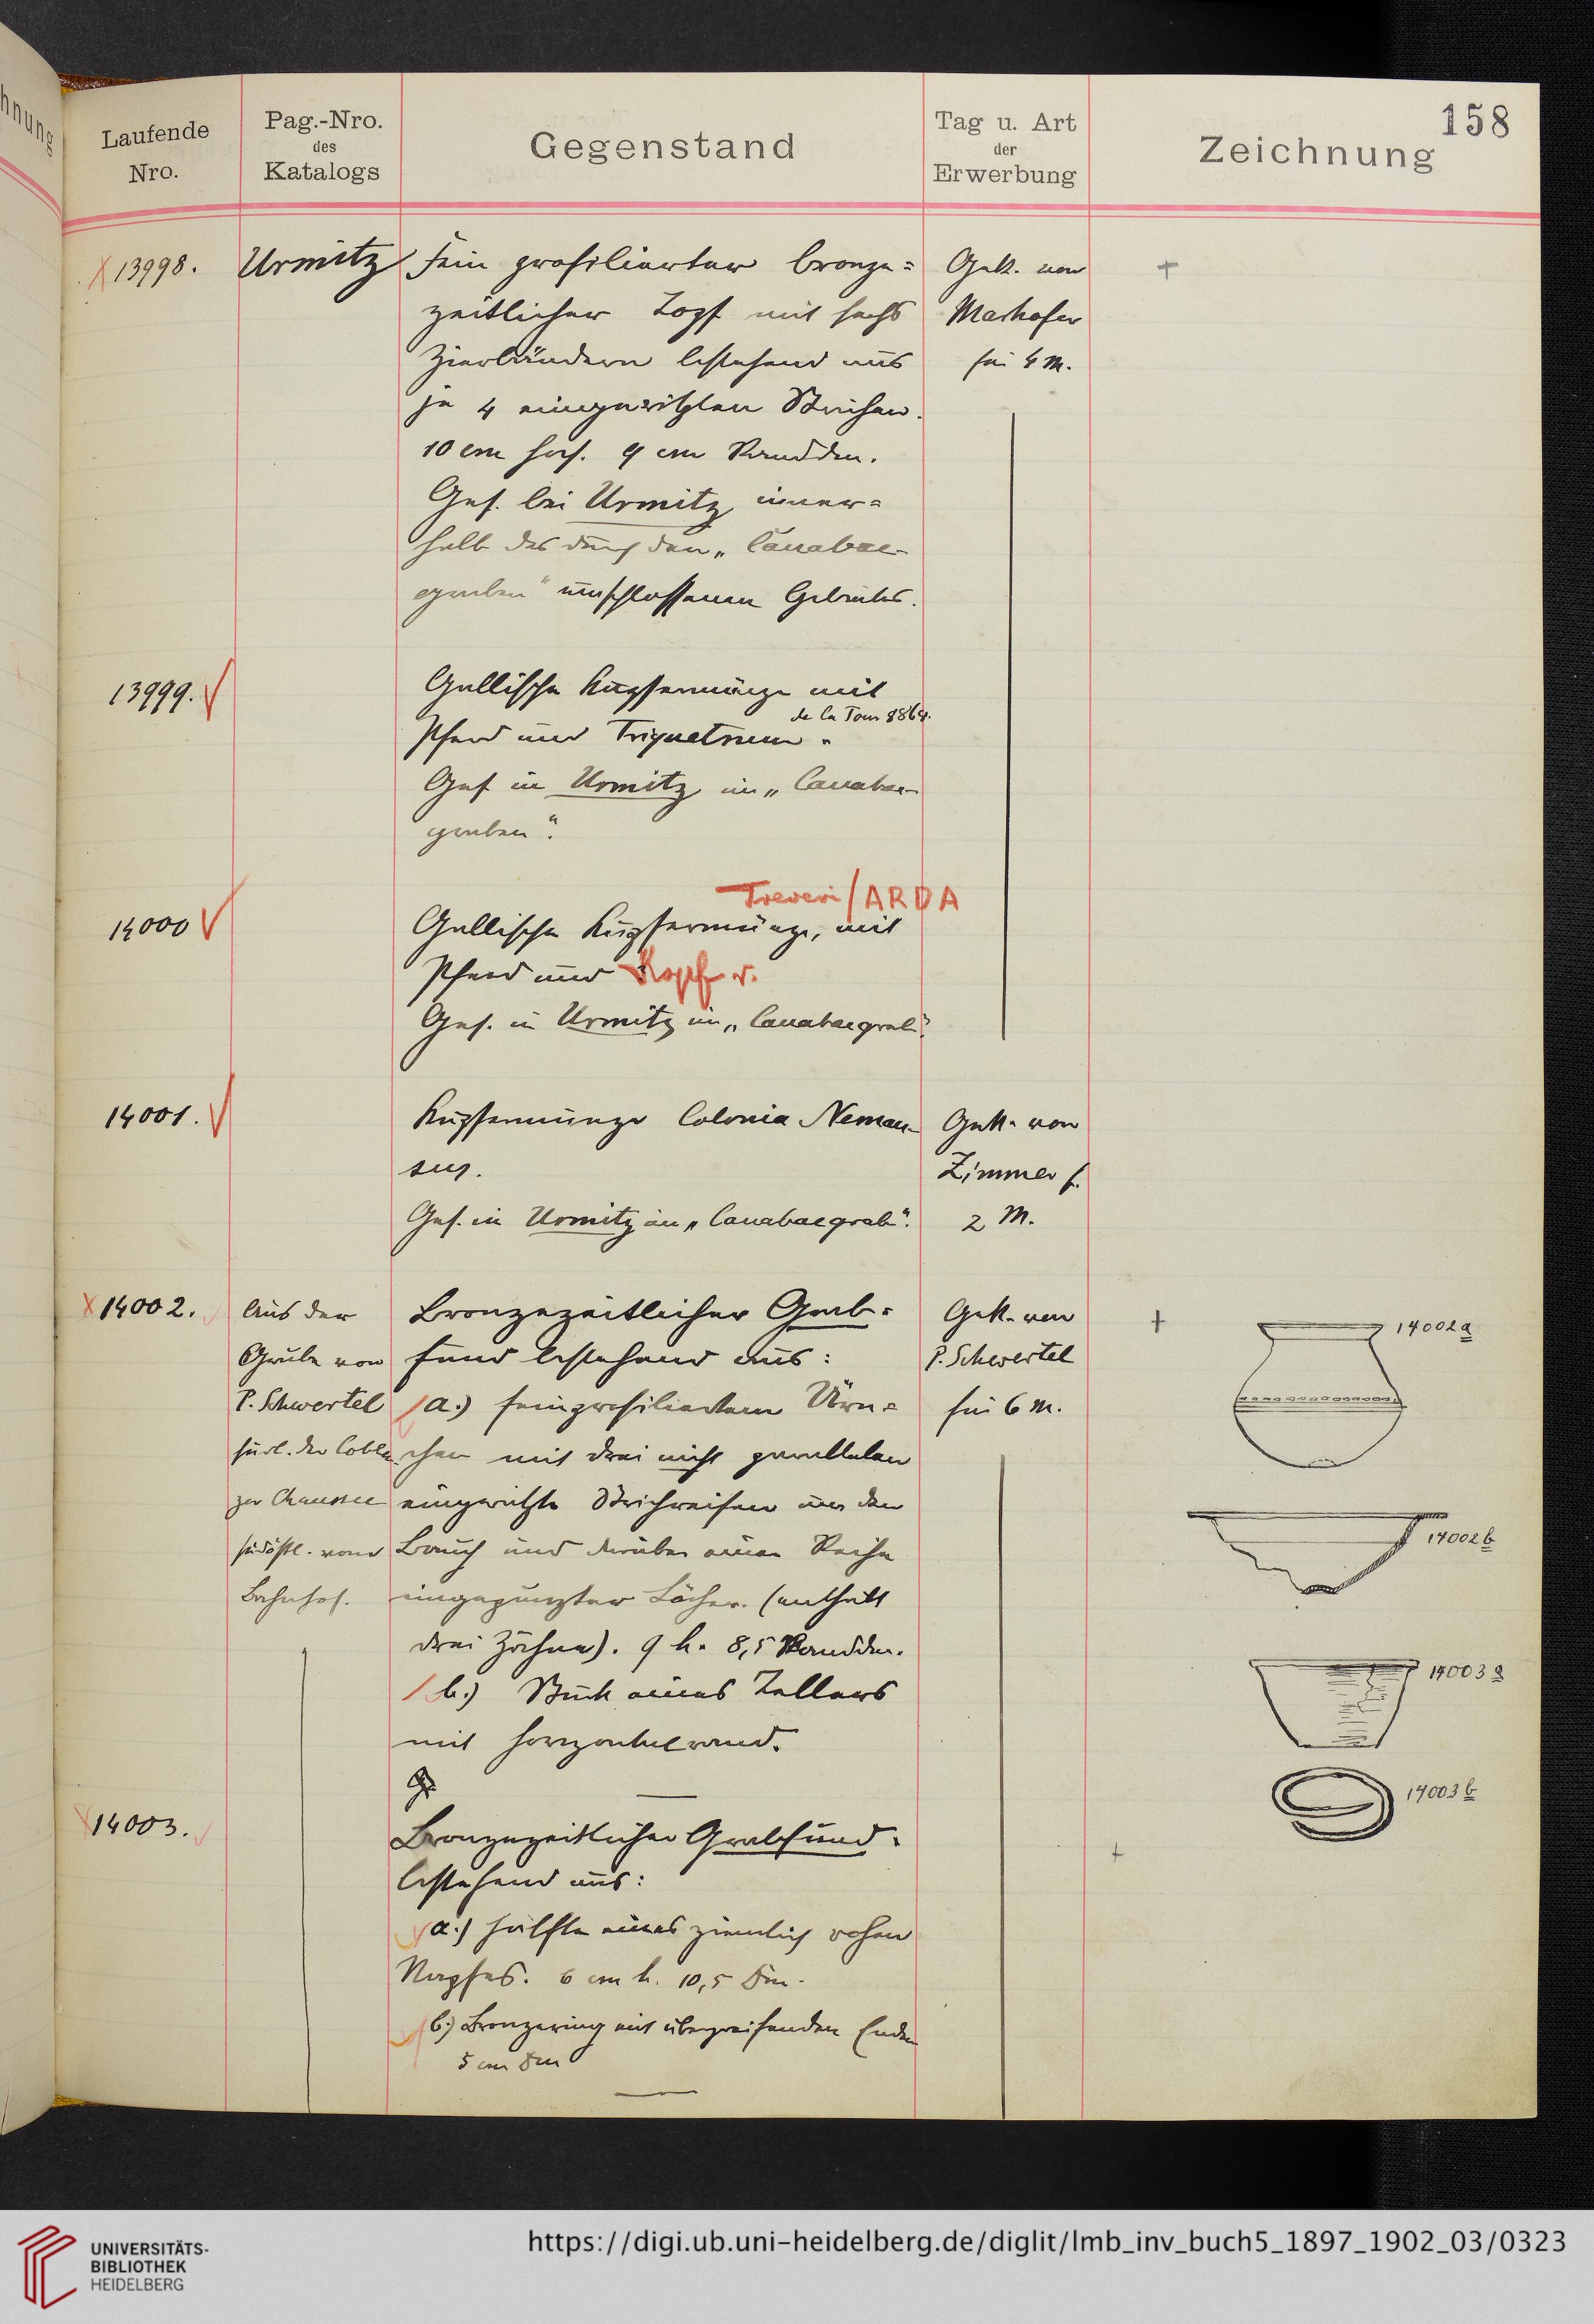 158
Laufende
Nro.
Pag.-Nro.
des
Katalogs
Gegenstand
Tag u. Art
der
Erwerbung
Zeichnung
13998.
Urmitz
Fein profilierter bronze=
zeitlicher Topf mit sechs
Zierbändern bestehend aus
je 4 eingeritzten Strichen.
10 cm hoch. 9 cm Randdm.
Gef. bei Urmitz inner=
halb des durch den „Canabae-
graben" umschlossenen Gebietes.
Gek. von
Marhofer
für 4 M.
13999.
Gallische Kupfermünze mit
de la Tour 8864.
Pferd und Triquetrum.
Gef in Urmitz im „Canabae-
graben".
14000
Treveri/ARDA
Gallische Kupfermünze, mit
Pferd und Kopf r.
Gef. in Urmitz im „Canabaegrab".
14001.
Kupfermünze Colonia Nemau-
sus.
Gef. in Urmitz im „Canabaegrab".
Gek. von
Zimmer f.
2 M.
14002.
Aus der
Grube von
P. Schwertel
südl. der Coblen
zer Chaussee
südöstl. vom
Bahnhof.
Bronzezeitlicher Grab=
fund bestehend aus:
a.) feinprofiliertem Urn=
chen mit drei nicht parallelen
eingeritzte Strichreifen um den
Bauch und darüber einer Reihe
eingepunzter Löcher. (enthält
drei Zähne). 9 h. 8,5 Randdm.
b.) Stück eines Tellers
mit Horizontalrand.
Gek. von
P. Schwertel
für 6 M.
14002a
14002b
14003a
14003b
14003.
Bronzezeitlicher Grabfund.
bestehend aus:
a.) Hälfte eines ziemlich rohen
Napfes. 6 cm h. 10,5 Dm.
b.) Bronzering mit übergreifenden Enden
5 cm Dm
UNIVERSITÄTS-
BIBLIOTHEK
HEIDELBERG
https://digi.ub.uni-heidelberg.de/diglit/lmb_inv_buch5_1897_1902_03/0323